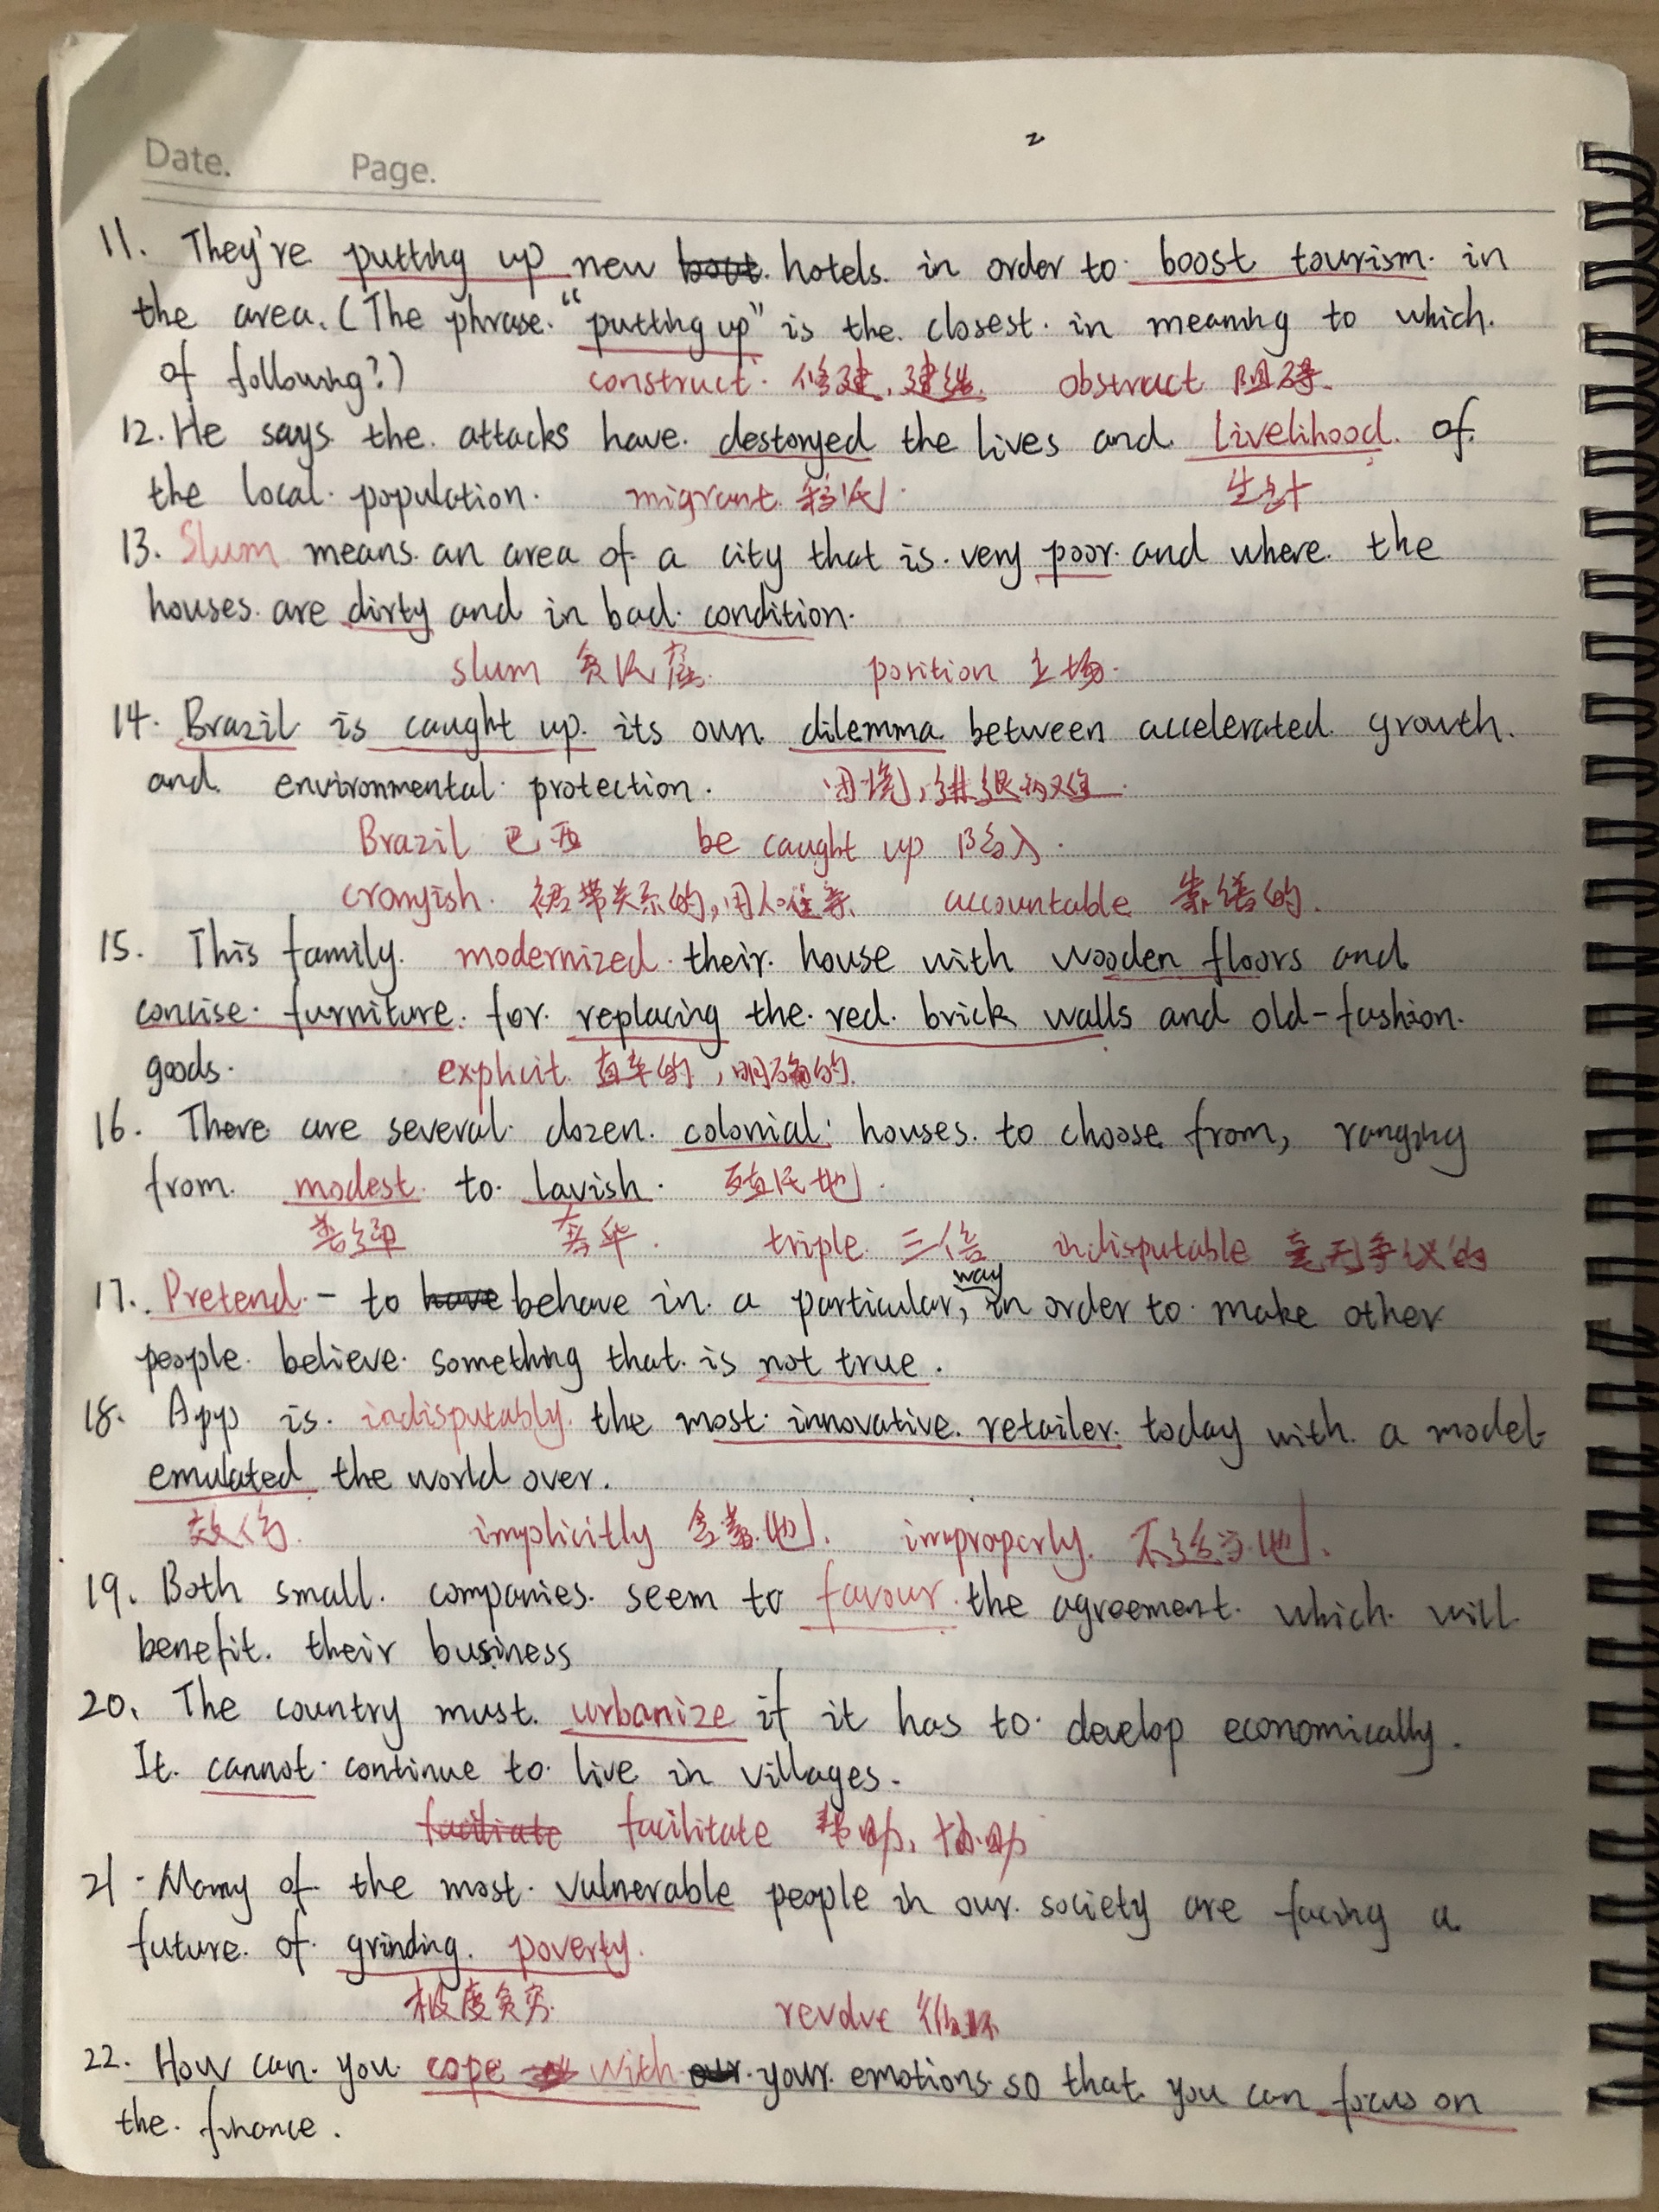 Date. Page.
2
11. They're putting up new hotels in order to boost tourism in
the area. (The phrase "putting up" is the closest in meaning to which
of following?) construct 修建,建造 obstruct 阻碍
12. He says the attacks have destoryed the lives and livelihood of
the local population. migrant 移民 生计
13. Slum means an area of a city that is very poor and where the
houses are dirty and in bad condition.
slum 贫民窟 position 立场
14. Brazil is caught up its own dilemma between accelerated growth
and environmental protection. 困境,进退两难
Brazil 巴西 be caught up 陷入
cronyish 裙带关系的,用人唯亲 accountable 靠谱的
15. This family modernized their house with wooden floors and
concise furniture for replacing the red brick walls and old-fashion
goods. explicit 直率的,明确的
16. There are several dozen colonial houses to choose from, ranging
from modest to lavish. 殖民地
普通 奢华 triple 三倍 indisputable 毫无争议的
17. Pretend - to behave in a particular way, in order to make other
people believe something that is not true.
18. App is indisputably the most innovative retailer today with a model
emulated the world over.
效仿 implicitly 含蓄地 improperly 不适当地
19. Both small companies seem to favour the agreement which will
benefit their business
20. The country must urbanize if it has to develop economically.
It cannot continue to live in villages.
facilitate 帮助,协助
21. Many of the most vulnerable people in our society are facing a
future of grinding poverty.
极度贫穷 revolve 循环
22. How can you cope with your emotions so that you can focus on
the finance.